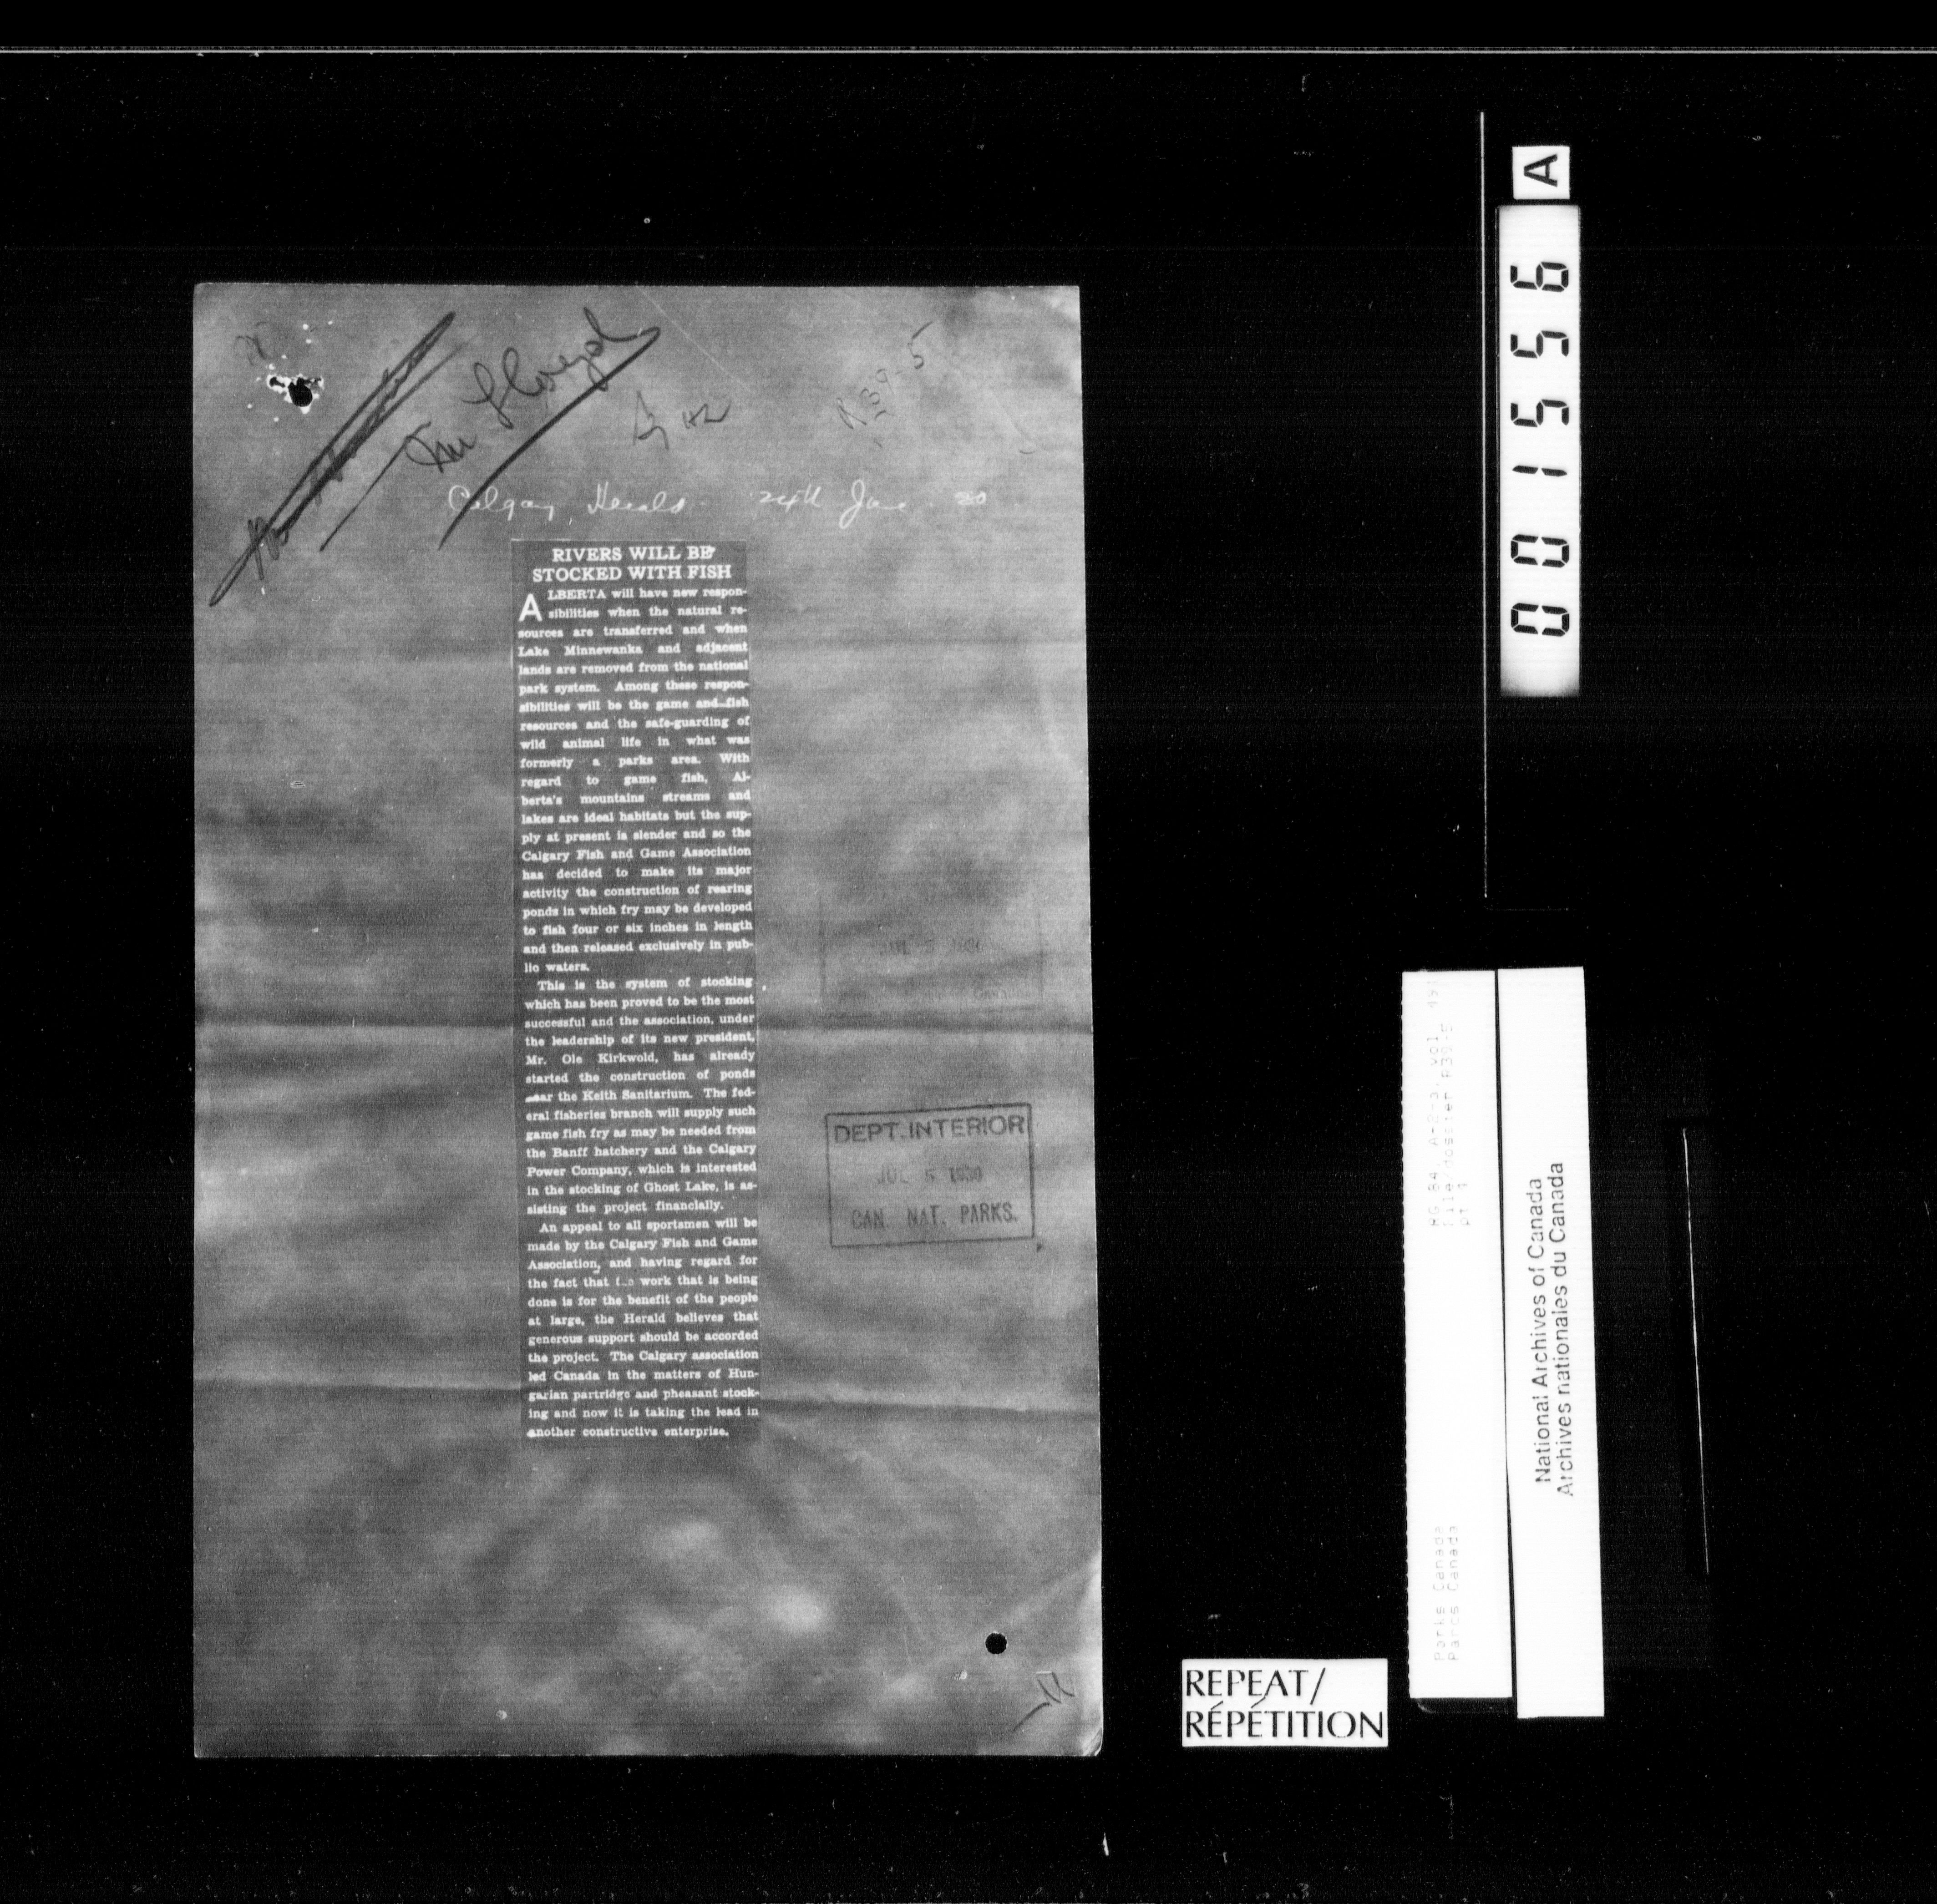 Mr Lloyd
R39-5
Calgary Herald 24th June 30
RIVERS WILL BE
STOCKED WITH FISH
ALBERTA will have new respon-
sibilities when the natural re-
sources are transferred and when
Lake Minnewanka and adjacent
lands are removed from the national
park system. Among these respon-
sibilities will be the game and fish
resources and the safe-guarding of
wild animal life in what was
formerly a parks area. With
regard to game fish, Al-
berta's mountains streams and
lakes are ideal habitats but the sup-
ply at present is slender and so the
Calgary Fish and Game Association
has decided to make its major
activity the construction of rearing
ponds in which fry may be developed
to fish four or six inches in length
and then released exclusively in pub-
lic waters.
This is the system of stocking
which has been proved to be the most
successful and the association, under
the leadership of its new president,
Mr. Ole Kirkwold, has already
started the construction of ponds
near the Keith Sanitarium. The fed-
eral fisheries branch will supply such
game fish fry as may be needed from
the Banff hatchery and the Calgary
Power Company, which is interested
in the stocking of Ghost Lake, is as-
sisting the project financially.
An appeal to all sportsmen will be
made by the Calgary Fish and Game
Association, and having regard for
the fact that the work that is being
done is for the benefit of the people
at large, the Herald believes that
generous support should be accorded
the project. The Calgary association
led Canada in the matters of Hun-
garian partridge and pheasant stock-
ing and now it is taking the lead in
another constructive enterprise.
DEPT. INTERIOR
JUL 5 1930
CAN. NAT. PARKS.
001556 A
RG 84, A-2-a, vol. 191
File/dossier R39-5
pt 1
Parks Canada
Parcs Canada
National Archives of Canada
Archives nationales du Canada
REPEAT/
RÉPÉTITION